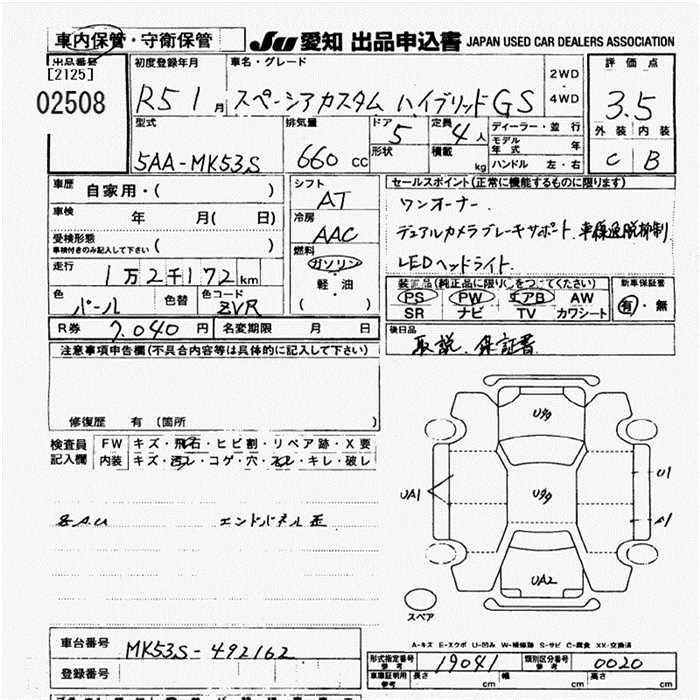 車内保管・守衛保管
JU 愛知 出品申込書 JAPAN USED CAR DEALERS ASSOCIATION
出品番号 [2125]
02508
初度登録年月 R5 1月
車名・グレード スペーシアカスタム ハイブリッドGS
2WD・4WD
評価点 3.5
外装 内装
C B
型式 5AA-MK53S
排気量 660 cc
ドア 5
形状
定員 4人
積載 kg
ディーラー・並行
モデル年式 年
ハンドル 左・右
車歴 自家用・( )
車検 年 月( 日)
受検形態 ( )
車検付きのみ記入して下さい
走行 1万2千172km
色 パール 色替 色コード ZVR
シフト AT
冷房 AAC
燃料 ガソリン・軽・油 ( )
セールスポイント(正常に機能するものに限ります)
ワンオーナー.
デュアルカメラブレーキサポート. 車線逸脱抑制
LEDヘッドライト.
装備品(純正品に限りしをつけてください)
PS PW エアB AW
SR ナビ TV カワシート
新車保証書
有・無
R券 7,040円 名変期限 月 日
後日品
取説. 保証書.
注意事項申告欄(不具合内容等は具体的に記入して下さい)
修復歴 有 (箇所 )
検査員記入欄
FW キズ・飛石・ヒビ割・リペア跡・X要
内装 キズ・汚レ・コゲ・穴・スレ・キレ・破レ
各A.U エンドパネル歪
UA1
U1
A1
UA2
スペア
A-キズ E-エクボ U-凹み W-補修跡 S-サビ C-腐食 XX-交換済
車台番号 MK53S-492162
登録番号
形式指定番号 参考 19041
類別区分番号 参考 0020
車庫証明用 参考 長さ cm 幅 cm 高さ cm